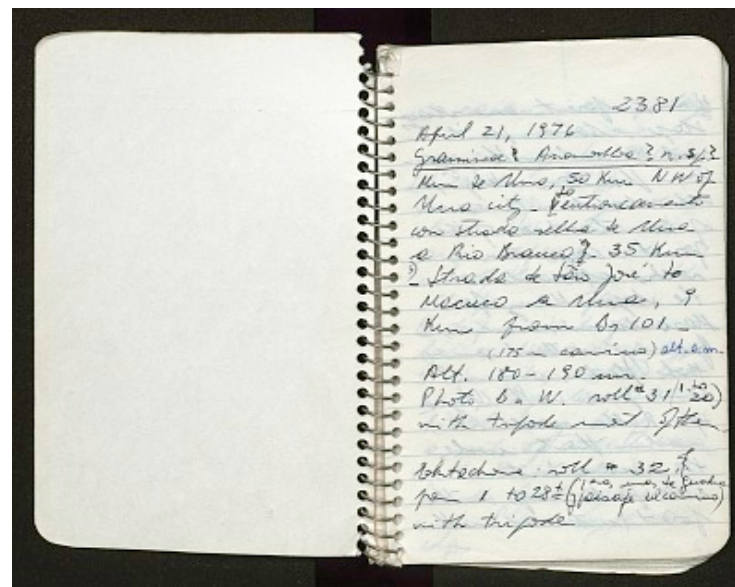 2381
April 21, 1976
Gramineae? Anomochloa? n. sp?
Mun de Una, 50 Km. NW of
Una city - to entroncamento
con strada velha de Una
a Rio Branco). 35 Km
- Strada de São José to
Macuco a Una, 9
Km from Br 101 -
(175 m camino) alt. s. m.
Alt. 180-190 m.
Photo B & W. roll # 31 (1 to 20)
with tripode most of them
Ektachrome roll # 32
1 to 28 ±
with tripode